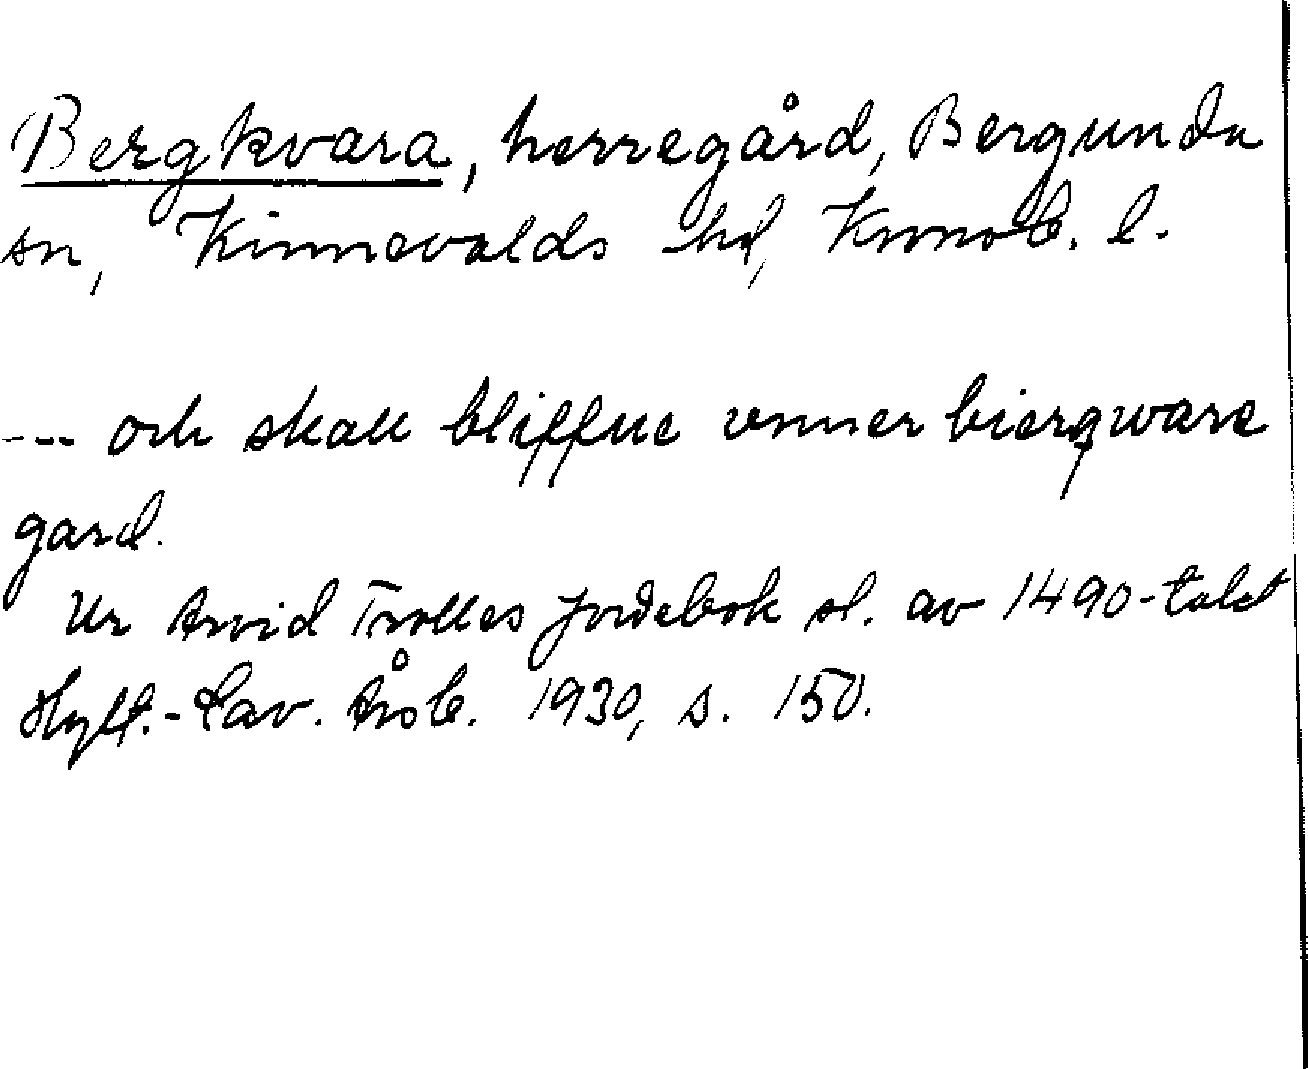 Bergkvara, herregård, Bergunda
sn, Kinnevalds hd, Kronob. l.
--- och skall bliffue vnner bierqware
gard.
Ur Arvid Trolles jordebok sl. av 1490-talet
Hylt.-Cav. Årsb. 1930, s. 150.